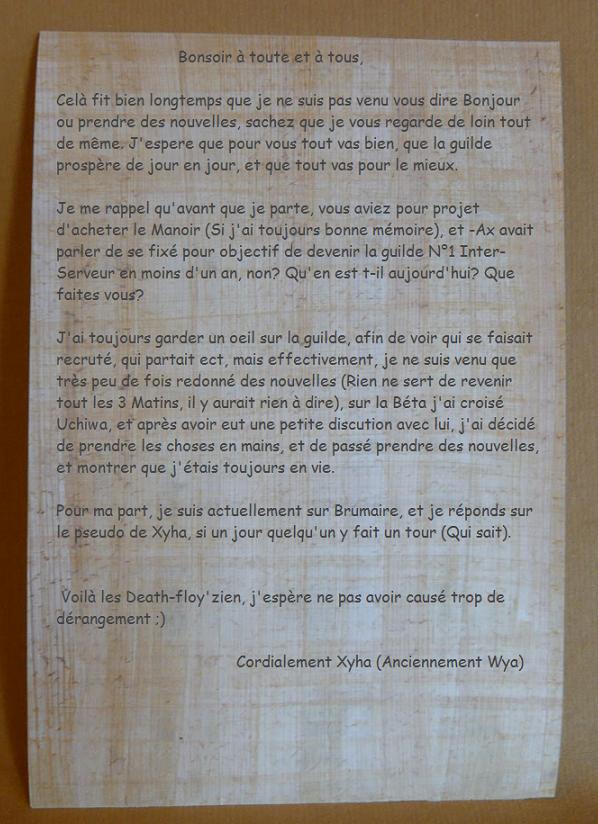 Bonsoir à toute et à tous,
Celà fit bien longtemps que je ne suis pas venu vous dire Bonjour
ou prendre des nouvelles, sachez que je vous regarde de loin tout
de même. J'espere que pour vous tout vas bien, que la guilde
prospère de jour en jour, et que tout vas pour le mieux.
Je me rappel qu'avant que je parte, vous aviez pour projet
d'acheter le Manoir (Si j'ai toujours bonne mémoire), et -Ax avait
parler de se fixé pour objectif de devenir la guilde N°1 Inter-
Serveur en moins d'un an, non? Qu'en est t-il aujourd'hui? Que
faites vous?
J'ai toujours garder un oeil sur la guilde, afin de voir qui se faisait
recruté, qui partait ect, mais effectivement, je ne suis venu que
très peu de fois redonné des nouvelles (Rien ne sert de revenir
tout les 3 Matins, il y aurait rien à dire), sur la Béta j'ai croisé
Uchiwa, et après avoir eut une petite discution avec lui, j'ai décidé
de prendre les choses en mains, et de passé prendre des nouvelles,
et montrer que j'étais toujours en vie.
Pour ma part, je suis actuellement sur Brumaire, et je réponds sur
le pseudo de Xyha, si un jour quelqu'un y fait un tour (Qui sait).
Voilà les Death-floy'zien, j'espère ne pas avoir causé trop de
dérangement ;)
Cordialement Xyha (Anciennement Wya)